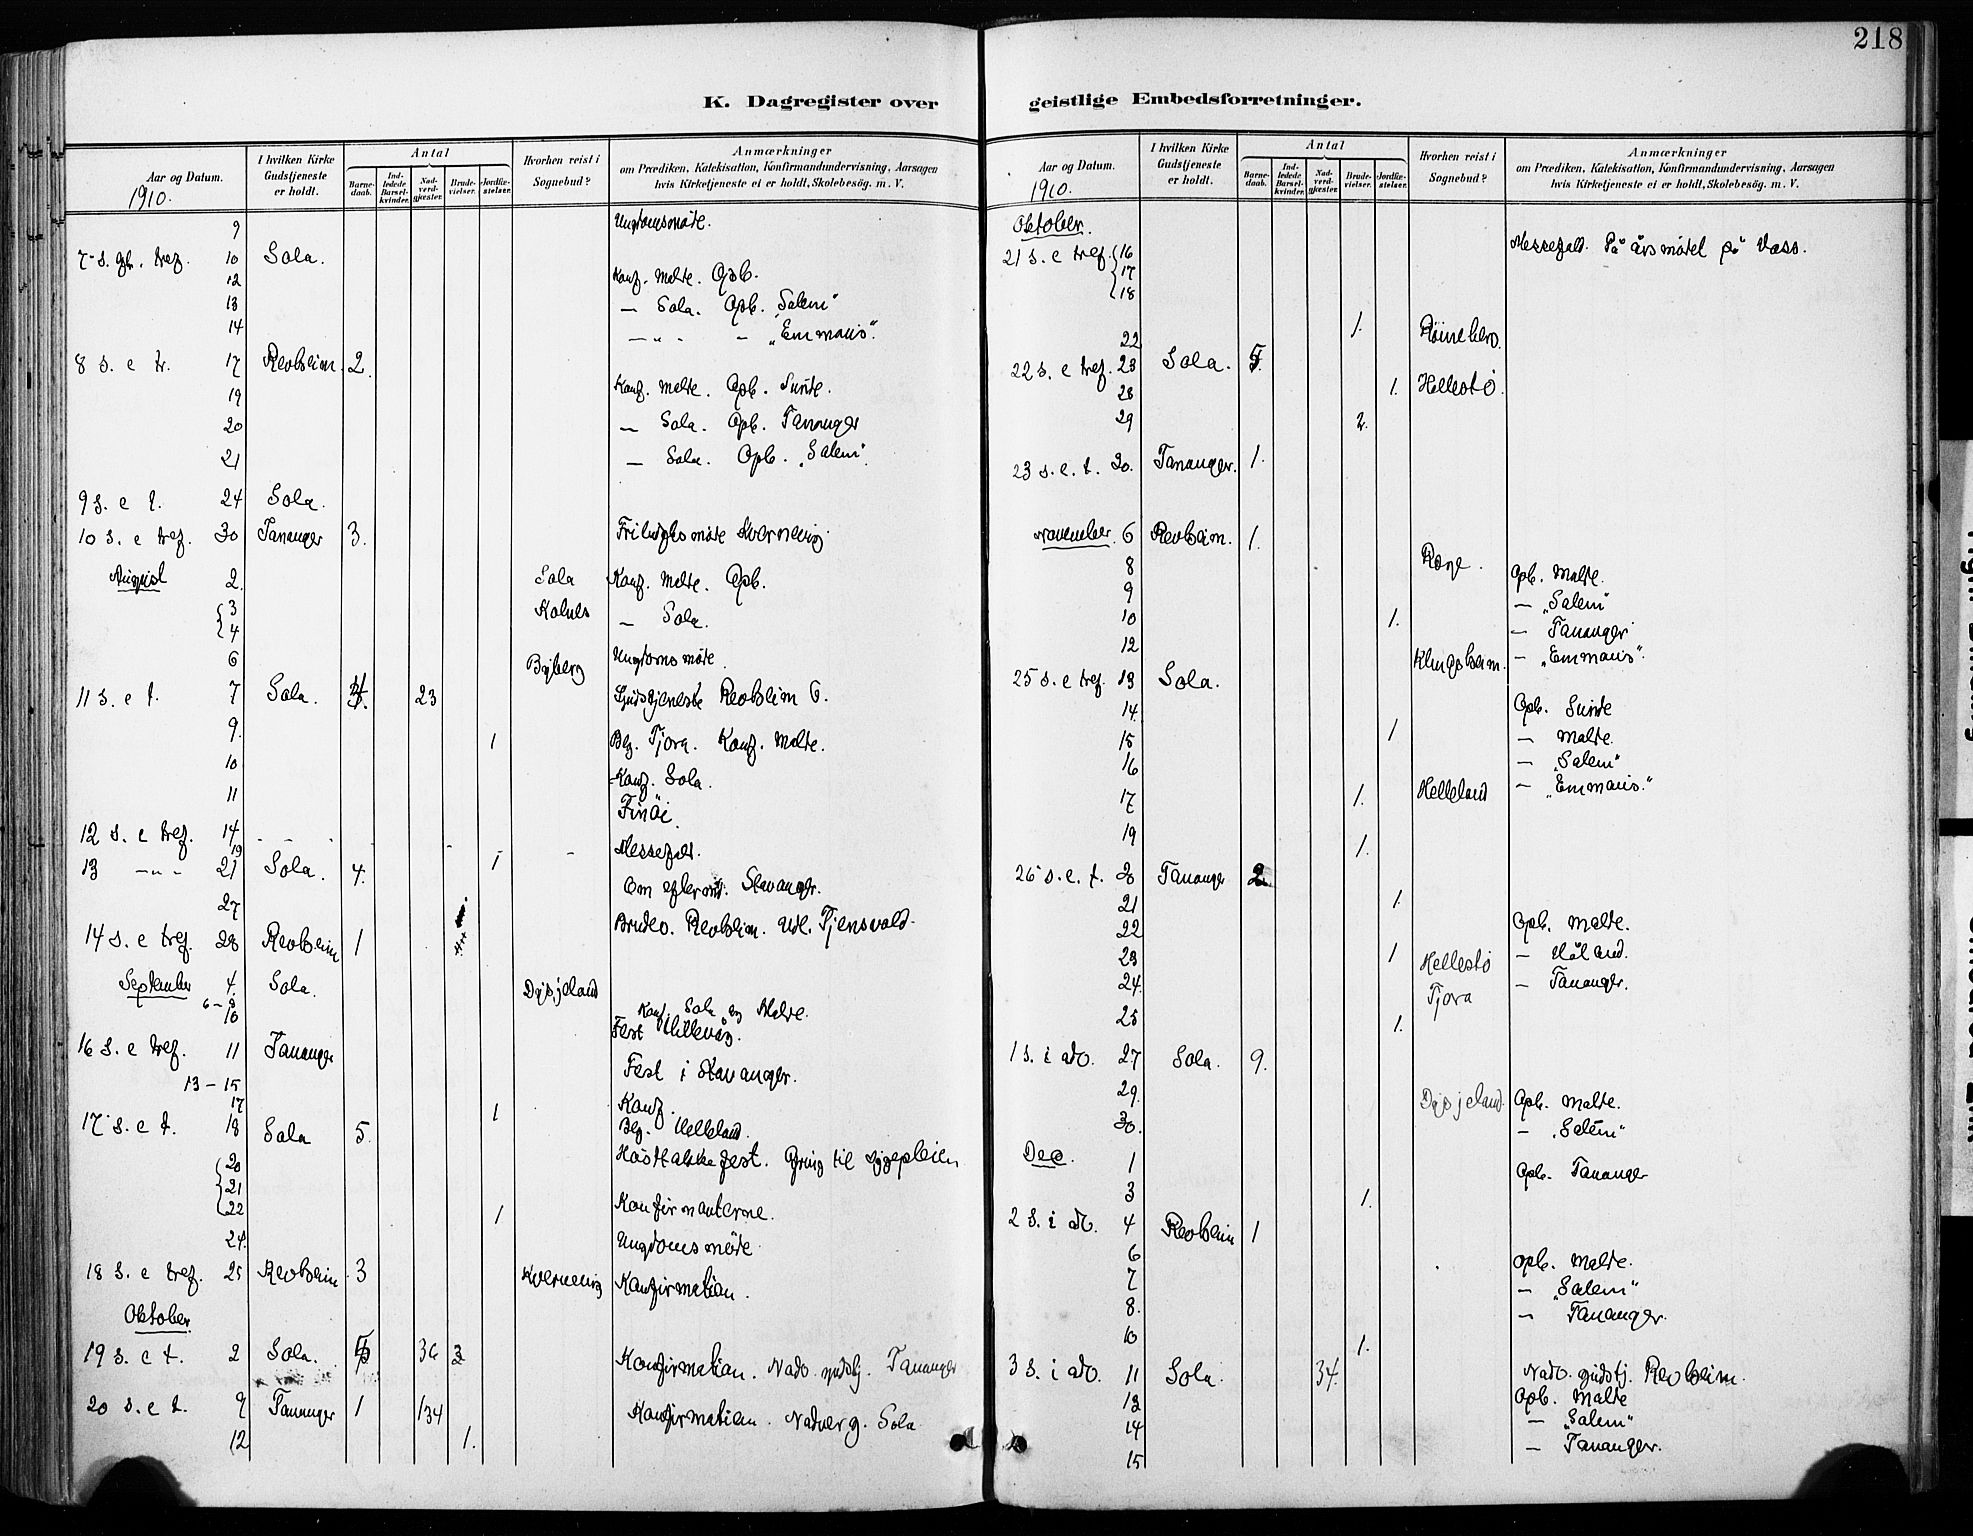 218
K. Dagregister over
Aar og Datum.
1910.
I hvilken Kirke Gudstjeneste er holdt.
Antal
Barnedaab.
Indledede Barselkvinder.
Nadverdgjester.
Brudevielser.
Jordfæstelser.
Hvorhen reist i Sognebud?
Anmærkninger
om Prædiken, Katekisation, Konfirmandundervisning, Aarsagen
hvis Kirketjeneste ei er holdt, Skolebesög. m. V.
9 Ungdomsmöte.
7 s. tref. 10 Sola.
12 Konf. Malde. Opb.
13 — Sola. Opb. "Salem"
14 — " - — "Emmaus".
8 s. e tr. 17 Revheim 2.
19 Konf. Malde. Opb. Sunde.
20 — Sola. Opb. Tananger
21 — Sola. Opb. "Salem".
9 s. e t. 24 Sola.
10 s. e tref. 30 Tananger 3. Friluftsmöte Kvernevig
August 2. Sola Konf. Malde. Opb.
3 Kolnes — Sola.
4
6 Byberg Ungdomsmöte.
11 s. e t. 7 Sola. 23 Gudstjeneste Revheim 6.
9. 1 Beg. Tjora. Konf. Malde.
10 Konf. Sola.
11 Finöi.
12 s. e tref. 14 - - - Messefald.
19 1
13 — " - 21 Sola. 4. Om efterm. Stavanger.
27 Brudev. Revheim. Udl. Tjensvold.
14 s. e tref. 28 Revheim 1
September 4. Sola. Dysjeland
6 - 8 Konf. Sola og Malde.
10 Fest Hillevåg.
16 s. e tref. 11 Tananger
13 - 15 Fest i Stavanger.
17 1 Konf.
17 s. e t. 18 Sola 5. Beg. Helleland.
20 Hösttakkefest. Offring til sygepleien
21
22 1 Konfirmanterne.
24. Ungdomsmöte.
18 s. e tref. 25 Revheim 3 Kvernevig Konfirmation.
Oktober
19 s. e t. 2 Sola. 36 3 Konfirmation. Nadv. gudstj. Tananger
20 s. e t. 9 Tananger 1 134 Konfirmation. Nadverg. Sola
12 1.
geistlige Embedsforretninger.
Aar og Datum.
1910.
I hvilken Kirke Gudstjeneste er holdt.
Antal
Barnedaab.
Indledede Barselkvinder.
Nadverdgjester.
Brudevielser.
Jordfæstelser.
Hvorhen reist i Sognebud?
Anmærkninger
om Prædiken, Katekisation, Konfirmandundervisning, Aarsagen
hvis Kirketjeneste ei er holdt, Skolebesög. m. V.
Oktober.
21 s. e tref. 16 Messefald. På årsmötet på Voss.
17
18
22 1. Röineberg.
22 s. e tref. 23 Sola. 5
28 1. Hellestö.
29 2.
23 s. e. t. 30. Tananger. 1.
November. 6 Revheim. 1.
8 Rege. Opb. Malde.
9 — "Salem"
10 1. — Tananger
12 Klingsheim. — "Emmaus".
25 s. e tref. 13 Sola.
14. Opb. Sunde
15 1 — Malde.
16 — "Salem"
17 1. Helleland — "Emmaus."
19 1.
26 s. e. t. 20 Tananger 2
21 1.
22 Opb. Malde.
23 1 Hellestö — Håland.
24. Tjora — Tananger.
25 1.
1 s. i adv. 27 Sola. 9.
29. Dysjeland. Opb. Malde.
30. — "Salem"
Dec. 1 Opb. Tananger
3 1.
2 s. i adv. 4 Revheim 1
6 Opb. Malde.
7 — "Salem"
8. — Tananger.
10 1.
3 s. i adv. 11 Sola. 34. Nadv. gudstj. Revheim.
13 Opb. Malde
14 — "Salem"
15 — Tananger.